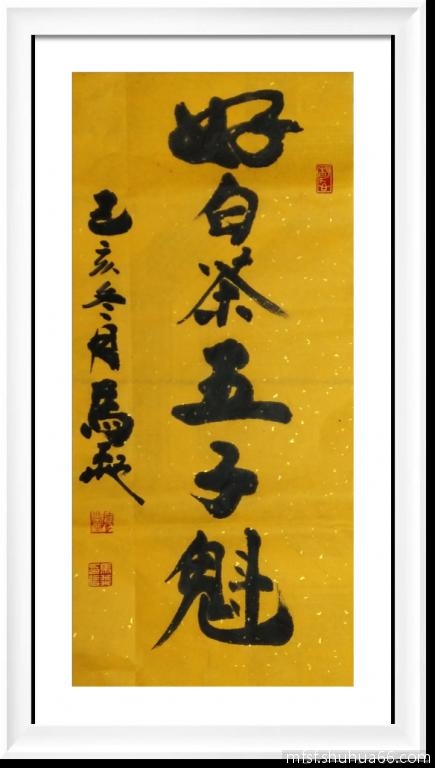 好白茶五子魁
己亥冬月馬
mfsf.shuhua66.com